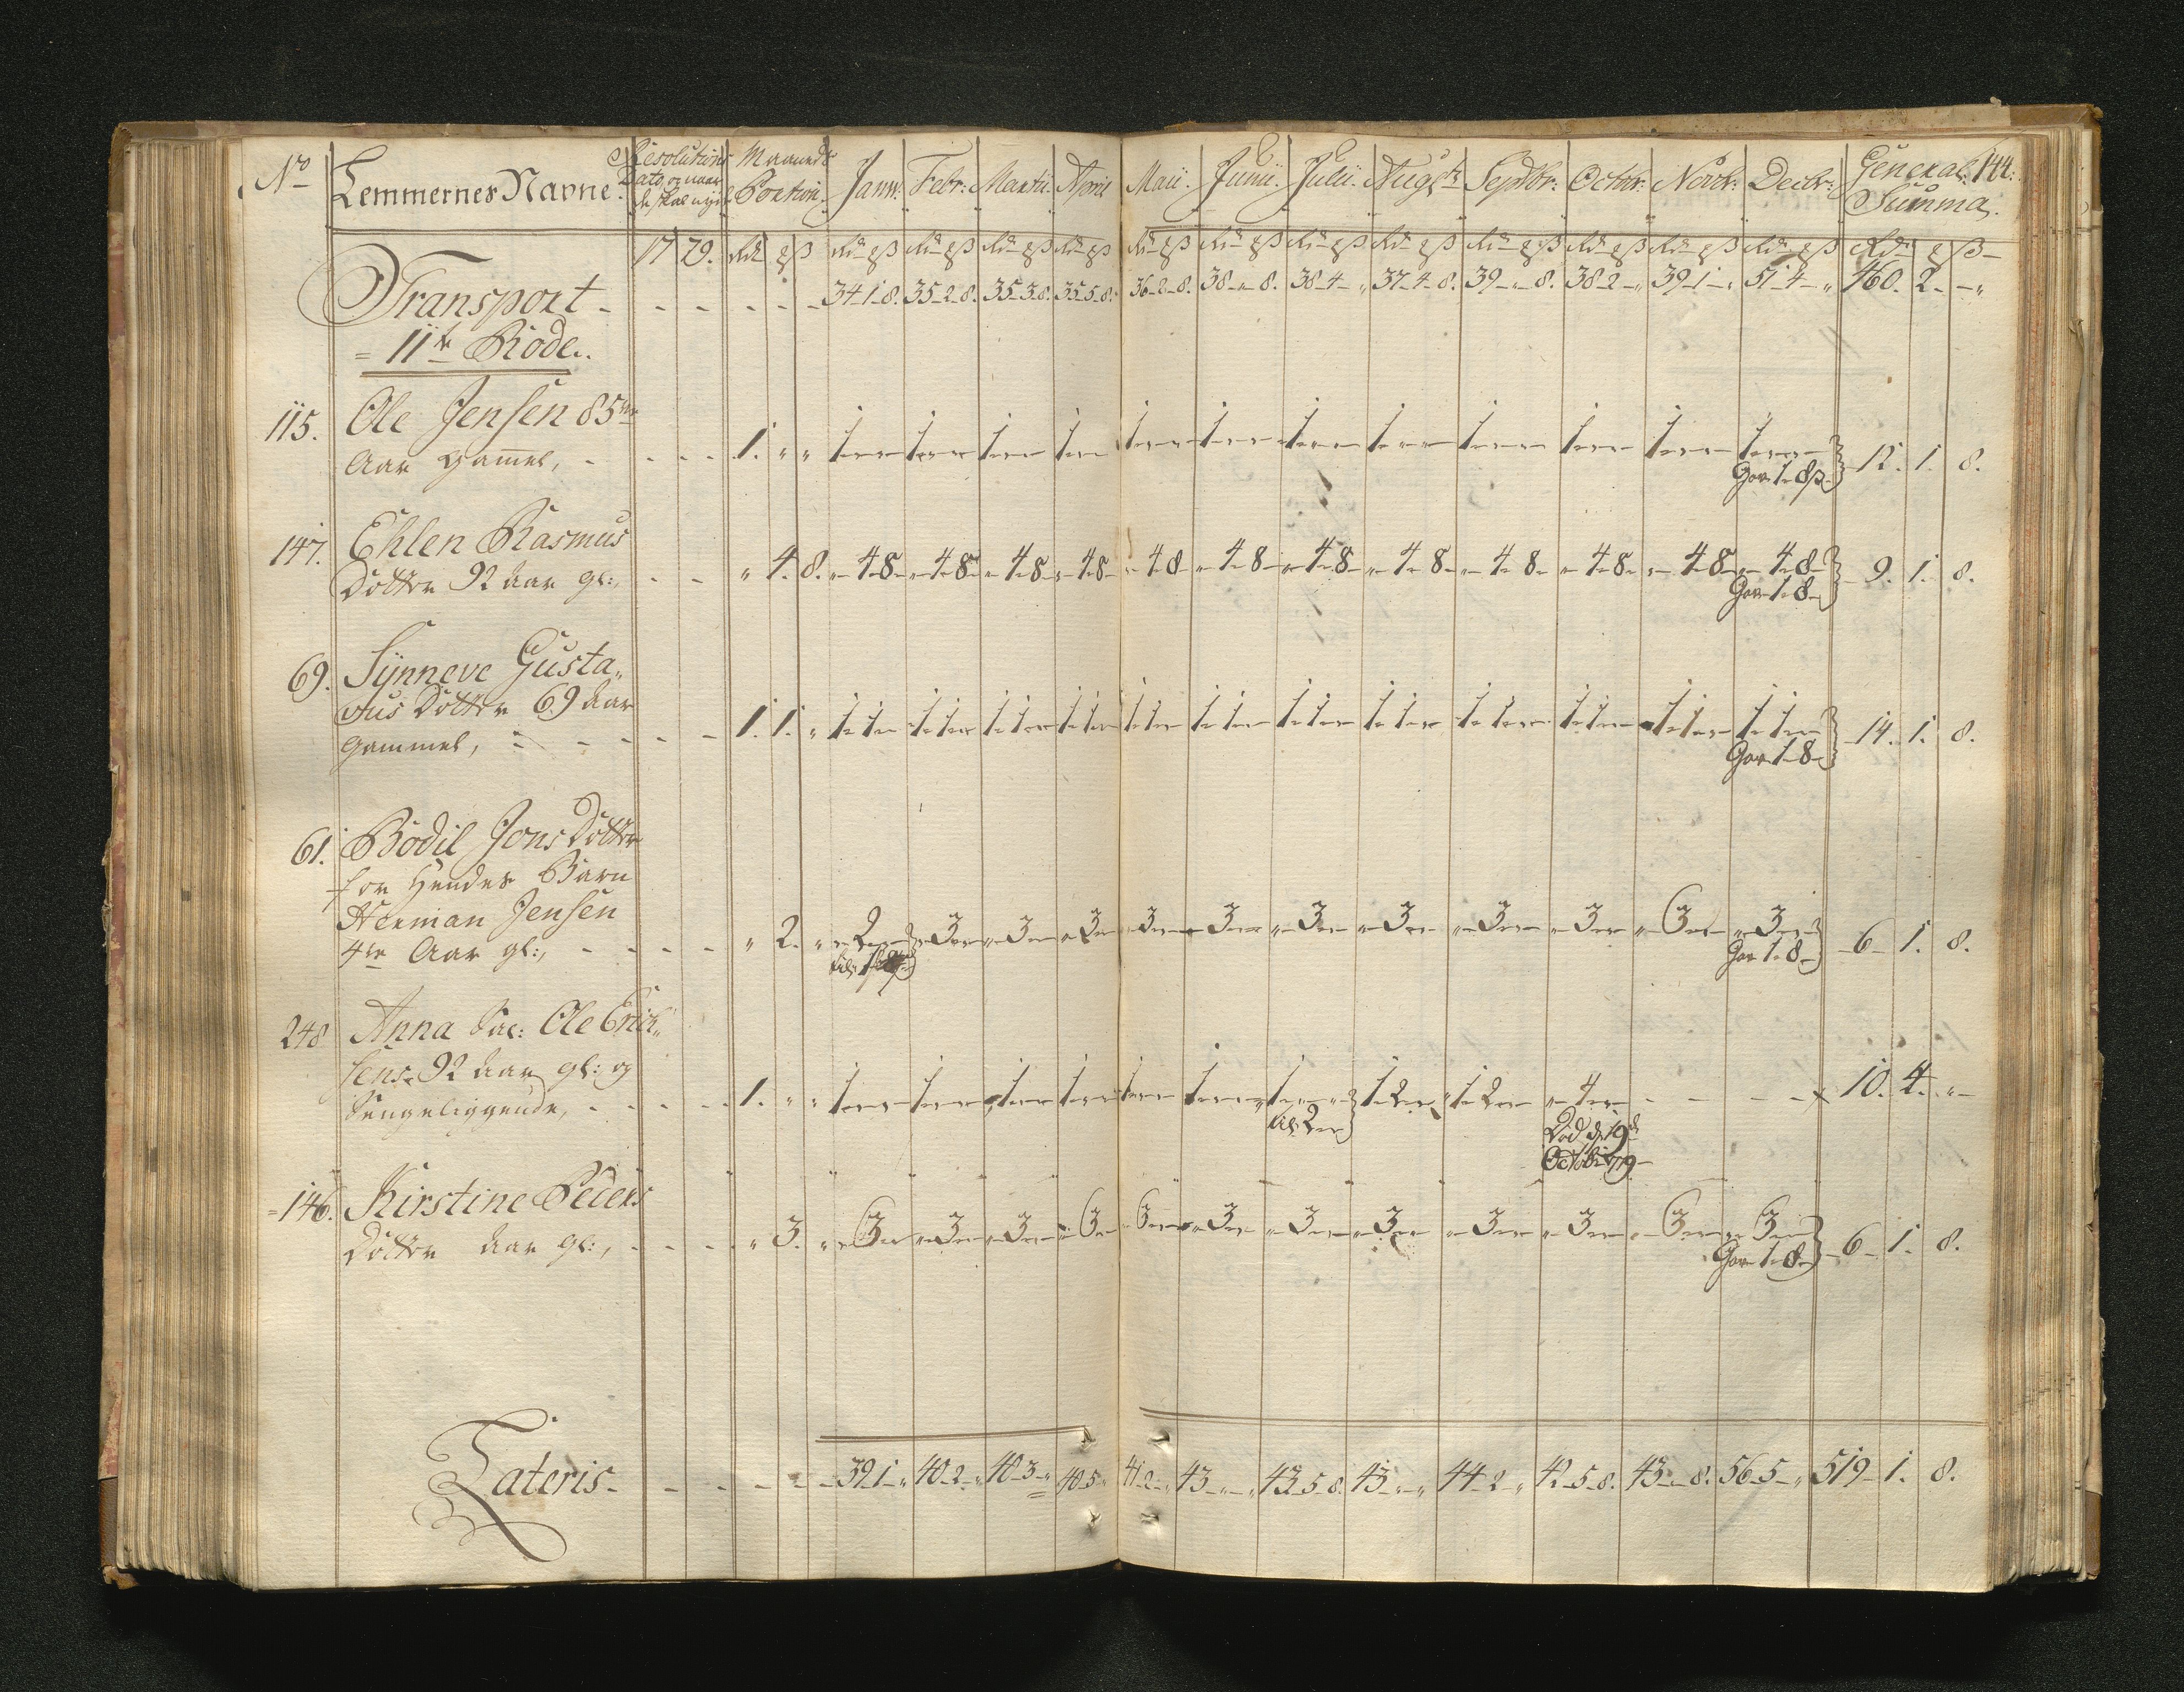 No Lemmernes Navne. Resolutions Dato og naar de skal nyde Maaneds Portion. Janu: Febr: Martii. April Maii. Junii. Julii. Augsti Septbr: Octbr: Novbr: Decbr: General Summa. 144.
17 79. Rd ß Rdr ß Rdr ß Rdr ß Rdr ß Rdr ß Rdr ß Rdr ß Rdr ß Rdr ß Rdr ß Rdr ß Rdr ß Rdr ß
Transport - - - - - - 34-1-8. 35-2-8. 35-3-8. 35-5-8. 36-2-8. 38-"-8. 38-4-" 37-4-8. 39-"-8. 38-2-" 39-1-" 51-4-" 460. 2. -"
= 11te Rode.
115. Ole Jensen 85ve
Aar gammel, - - - - 1. " " 1-"-" 1-"-" 1-"-" 1-"-" 1-"-" 1-"-" 1-"-" 1-"-" 1-"-" 1-"-" 1-"-" 1-"-" 12. 1. 8.
Gov. 1-8ß
147. Ehlen Rasmus
Dotter 92 Aar gl:, - - " 4. 8. "-4-8 "-4-8 "-4-8 "-4-8 "-4-8 "-4-8 "-4-8 "-4-8 "-4-8 "-4-8 "-4-8 "-4-8 9. 1. 8.
Gov-1-8
69. Synneve Gusta„
vus Dotter 69 Aar
gammel, - - - - - 1. 1. " 1-1-" 1-1-" 1-1-" 1-1-" 1-1-" 1-1-" 1-1-" 1-1-" 1-1-" 1-1-" 1-1-" 1-1-" 14. 1. 8.
Gov-1-8
61. Bodil Jons Dotter
for Hendes Barn
Herman Jensen
4re Aar gl:, - - - - - " 2. " "-2-" "-3-" "-3-" "-3-" "-3-" "-3-" "-3-" "-3-" "-3-" "-3-" "-3-" "-3-" 6- 1. 8.
Gov 1-8
248 Anna Sal: Ole Erich„
sens 92 Aar gl: og
Sengeliggende, - - - - 1. " " 1-"-" 1-"-" 1-"-" 1-"-" 1-"-" 1-"-" 1-"-" 1-2-" 1-2-" "-4-" - - - - 10. 4. "-
til 2-"
Død d: 19de
Octobr: 79
146. Kirstine Peders
Dotter Aar gl:, - - - - " 3. " "-3-" "-3-" "-3-" "-3-" "-3-" "-3-" "-3-" "-3-" "-3-" "-3-" "-3-" "-3-" 6- 1. 8.
Gov 1-8
Lateris - - - - - - 39-1-" 40-2-" 40-3-" 40-5-" 41-2-" 43-"-" 43-5-8. 43-"-" 44-2-" 42-5-8. 43-"-8. 56-5-" 519- 1. 8.